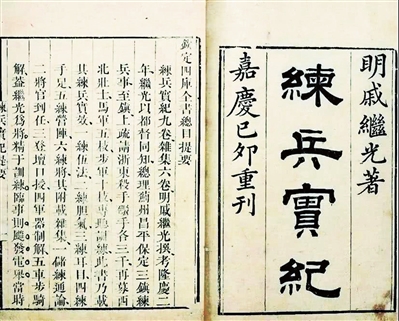 明戚繼光著
練兵實紀
嘉慶己卯重刊
欽定四庫全書總目提要
練兵實紀九卷雜集六卷明戚繼光撰考隆慶二
年繼光以都督同知總理薊州昌平保定三鎮練
兵事至鎮上疏請浙東殺手礮手各三千再募西
北壯士馬軍五枝步軍十枝專聽訓練此書乃載
其練兵實效一練伍法二練膽氣三練耳目四練
手足五練營陣六練將其附載雜集一儲練通論
二將官到任三登壇口授四軍器制解五車步騎
解蓋繼光爲將精于訓練臨事則飈發電舉當時
練兵實紀提要